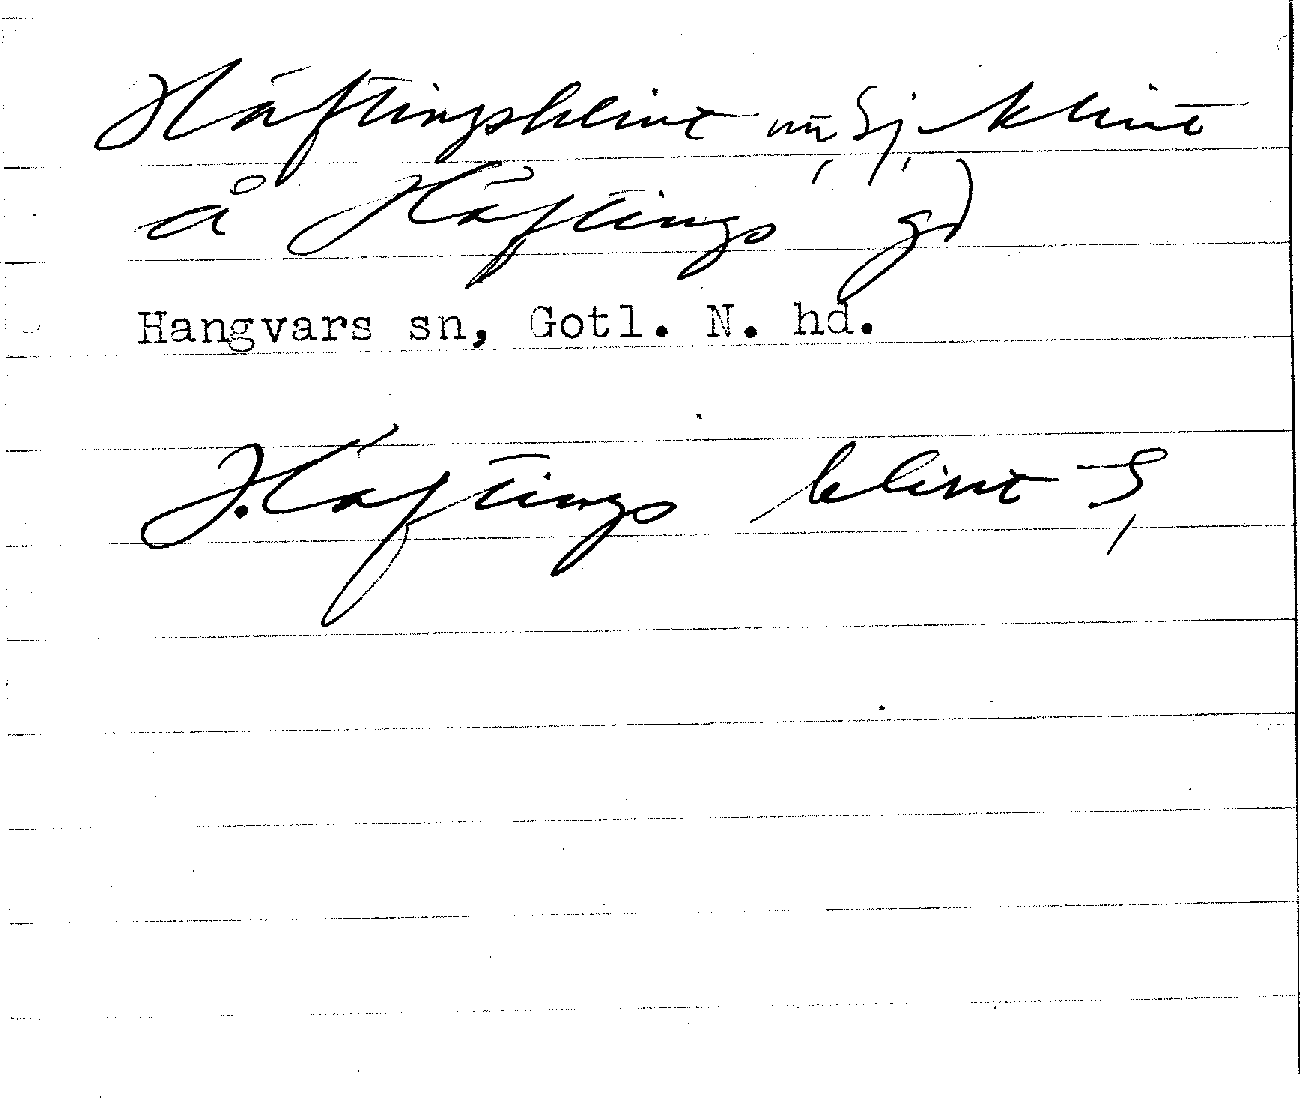 Häftingsklint klint
å Häftings gd
Hangvars sn, Gotl. N. hd.
Häftings klint